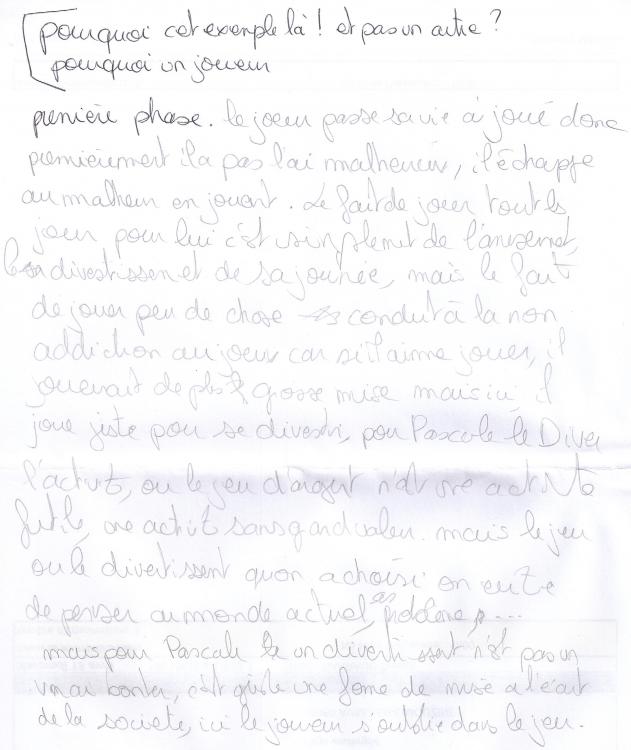 pourquoi cet exemple là ! et pas un autre ?
pourquoi un joueur
première phase. le joeur passe sa vie à joué donc
premièrement il a pas l'ai malheureux, il échappe
au malheur en jouant. Le fait de jouer tout les
jour pour lui c'est simplement de l'amusement,
divertissement de sa journée, mais le fait
de jouer peu de chose conduit à la non
addiction au joeur car s'il aime jouer, il
jouerait de plus grosse mise mais ici il
joue juste pour se divertir, pour Pascale le Diver
l'activité, ou le jeu d'argent n'est une activité
futile, une activité sans grand valeur. mais le jeu
ou le divertissent qu'on a choisi on evite
de penser au monde actuel, problème ...
mais pour Pascale le un divertissent n'est pas un
vrai bonheur, c'est juste une forme de mise a l'écart
de la societe, ici le joueur s'oublie dans le jeu.